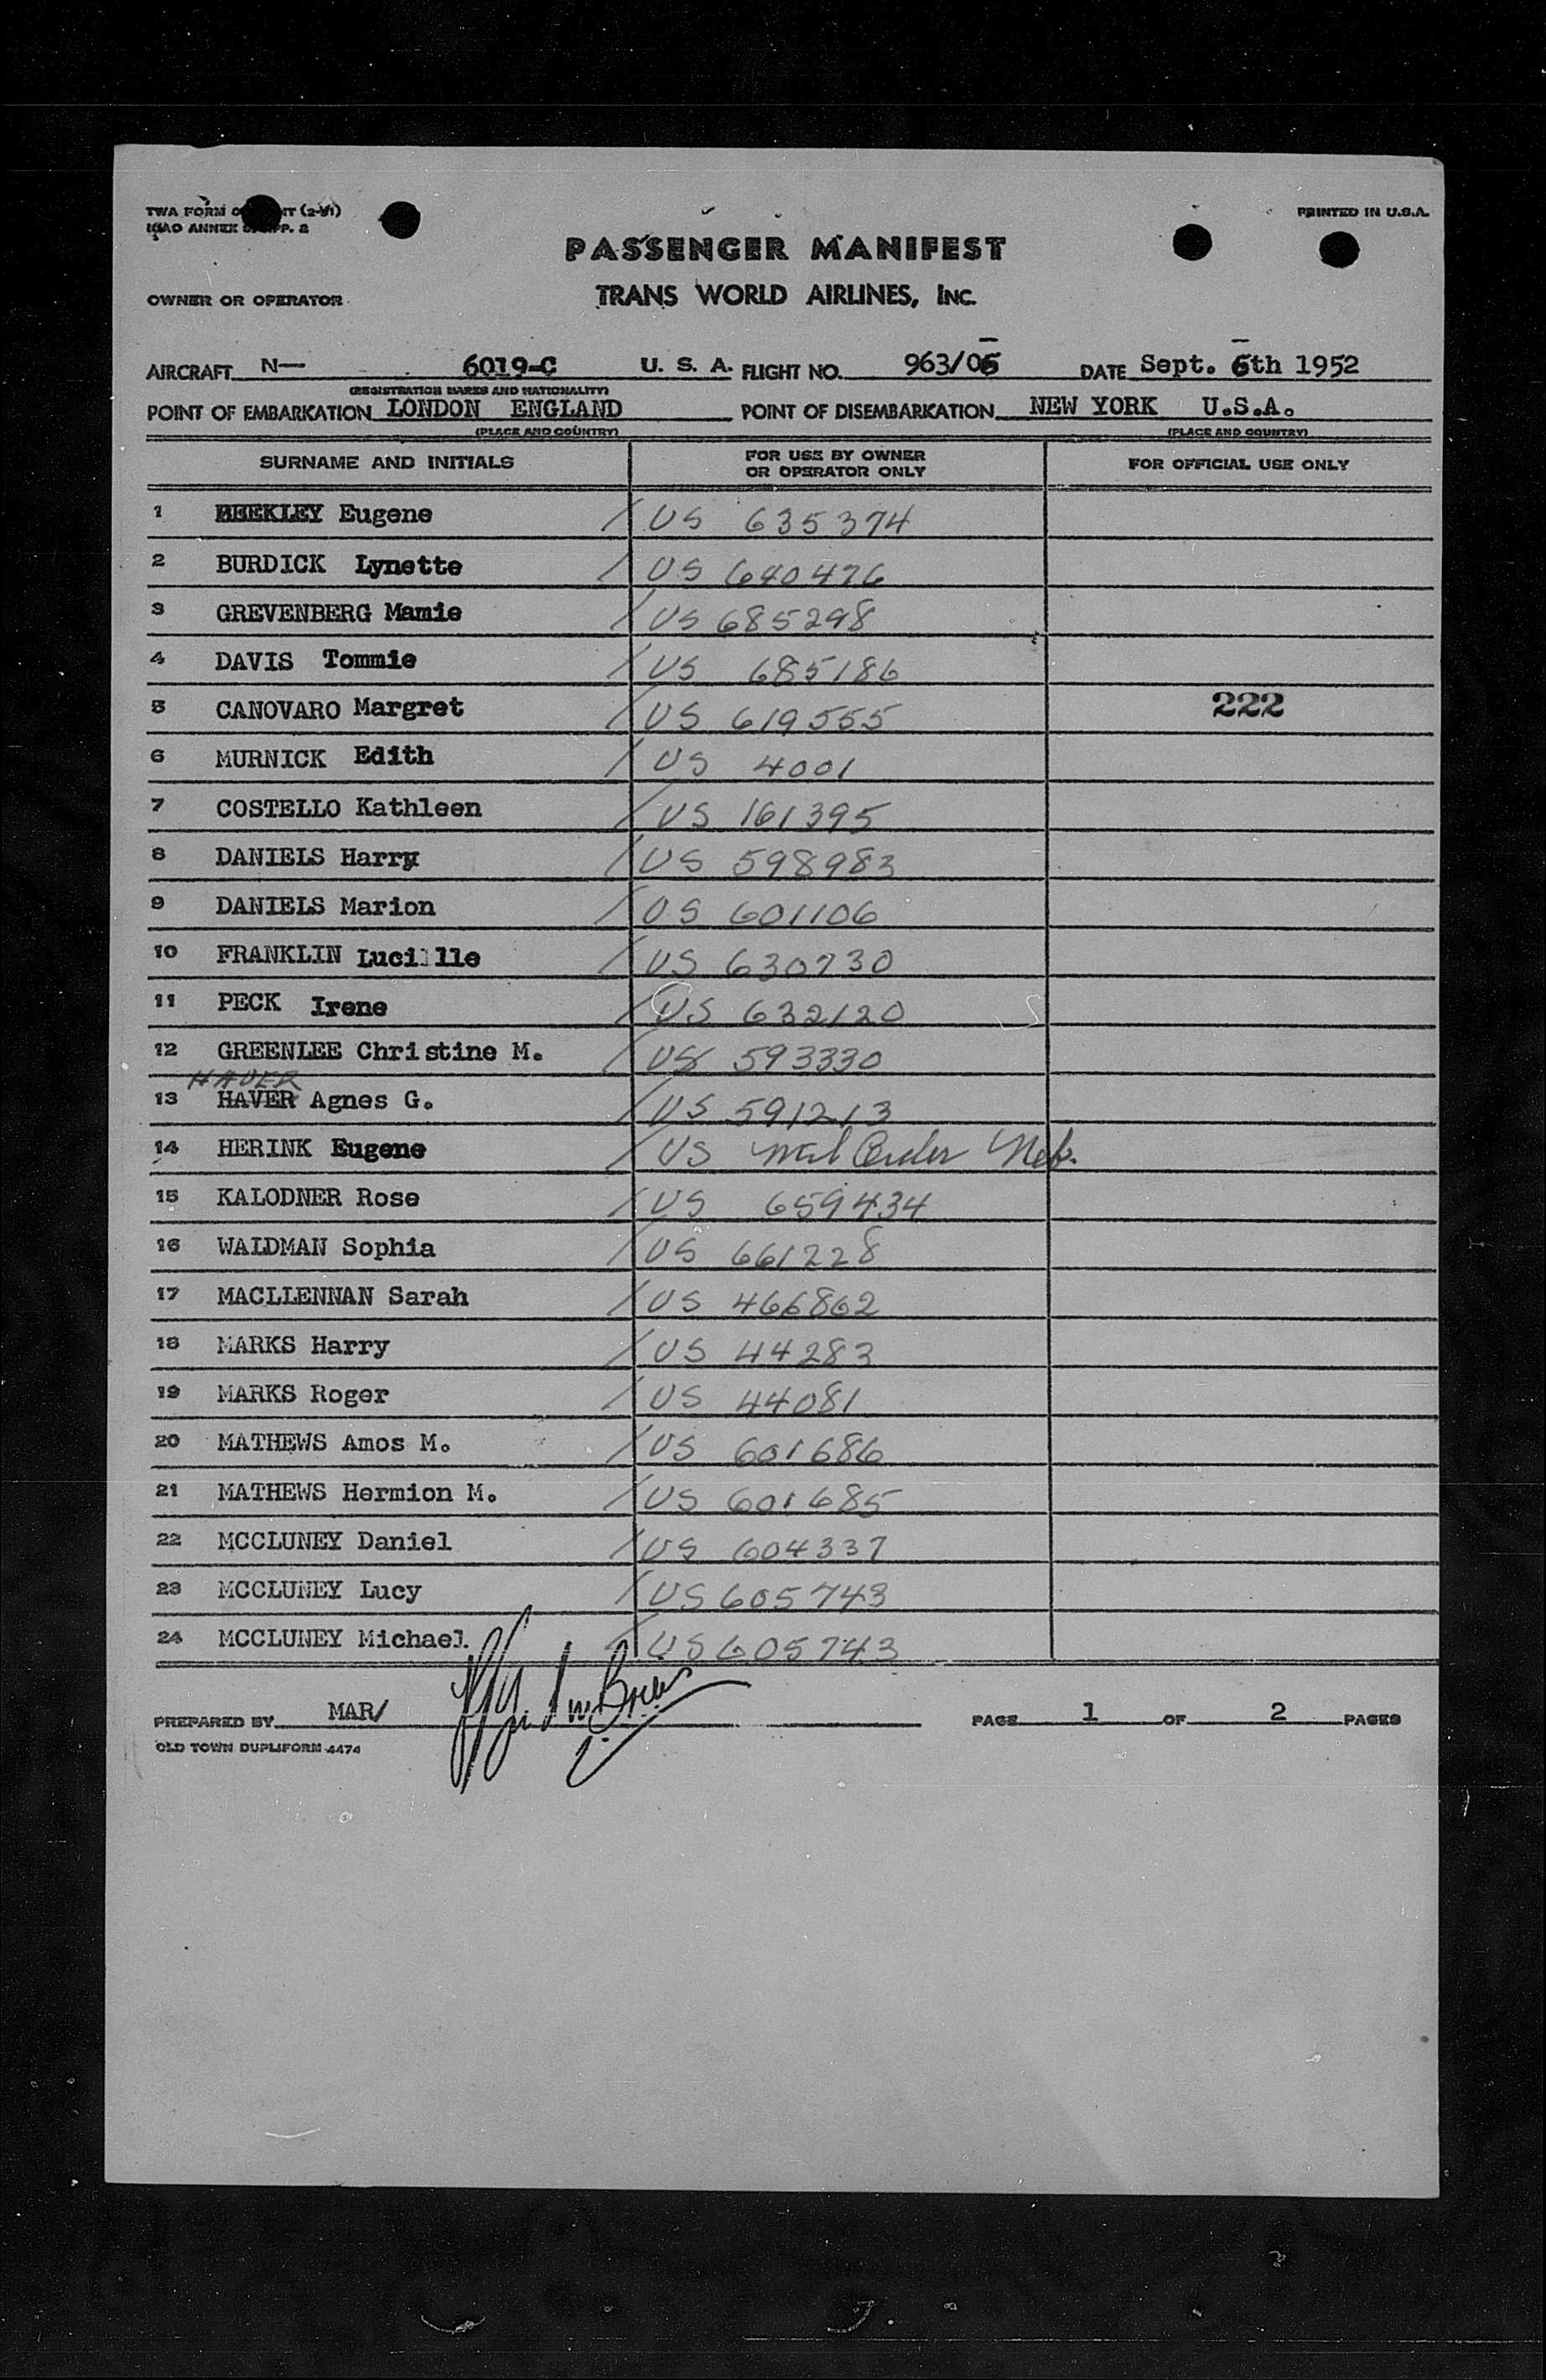 TWA FORM (2-51)
ICAO ANNEX 9 APP. 2
PRINTED IN U.S.A.
PASSENGER MANIFEST
OWNER OR OPERATOR TRANS WORLD AIRLINES, INC.
AIRCRAFT N— 6019-C U. S. A. FLIGHT NO. 963/05 DATE Sept. 6th 1952
(REGISTRATION MARKS AND NATIONALITY)
POINT OF EMBARKATION LONDON ENGLAND POINT OF DISEMBARKATION NEW YORK U.S.A.
(PLACE AND COUNTRY) (PLACE AND COUNTRY)
SURNAME AND INITIALS FOR USE BY OWNER OR OPERATOR ONLY FOR OFFICIAL USE ONLY
1 BEEKLEY Eugene / US 635374
2 BURDICK Lynette / US 640476
3 GREVENBERG Mamie / US 685298
4 DAVIS Tommie / US 685186
5 CANOVARO Margret / US 619555 222
6 MURNICK Edith / US 4001
7 COSTELLO Kathleen / US 161395
8 DANIELS Harry / US 598983
9 DANIELS Marion / US 601106
10 FRANKLIN Lucille / US 630730
11 PECK Irene / US 632120
12 GREENLEE Christine M. / US 593330
HAVER
13 HAVER Agnes G. / US 591213
14 HERINK Eugene / US Neb.
15 KALODNER Rose / US 659434
16 WALDMAN Sophia / US 661228
17 MACLLENNAN Sarah / US 466862
18 MARKS Harry / US 44283
19 MARKS Roger / US 44081
20 MATHEWS Amos M. / US 601686
21 MATHEWS Hermion M. / US 601685
22 MCCLUNEY Daniel / US 604337
23 MCCLUNEY Lucy / US 605743
24 MCCLUNEY Michael / US 605743
PREPARED BY MAR/ PAGE 1 OF 2 PAGES
OLD TOWN DUPLIFORM 4474